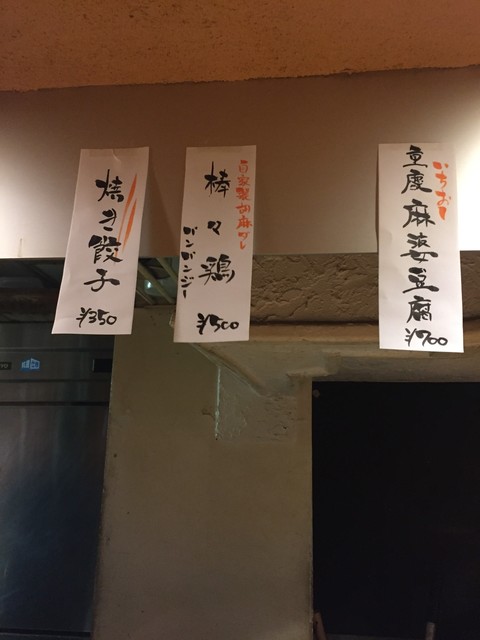 いちおし
重慶麻婆豆腐
¥700
自家製胡麻ダレ
棒々鶏
バンバンジー
¥500
焼き餃子
¥350